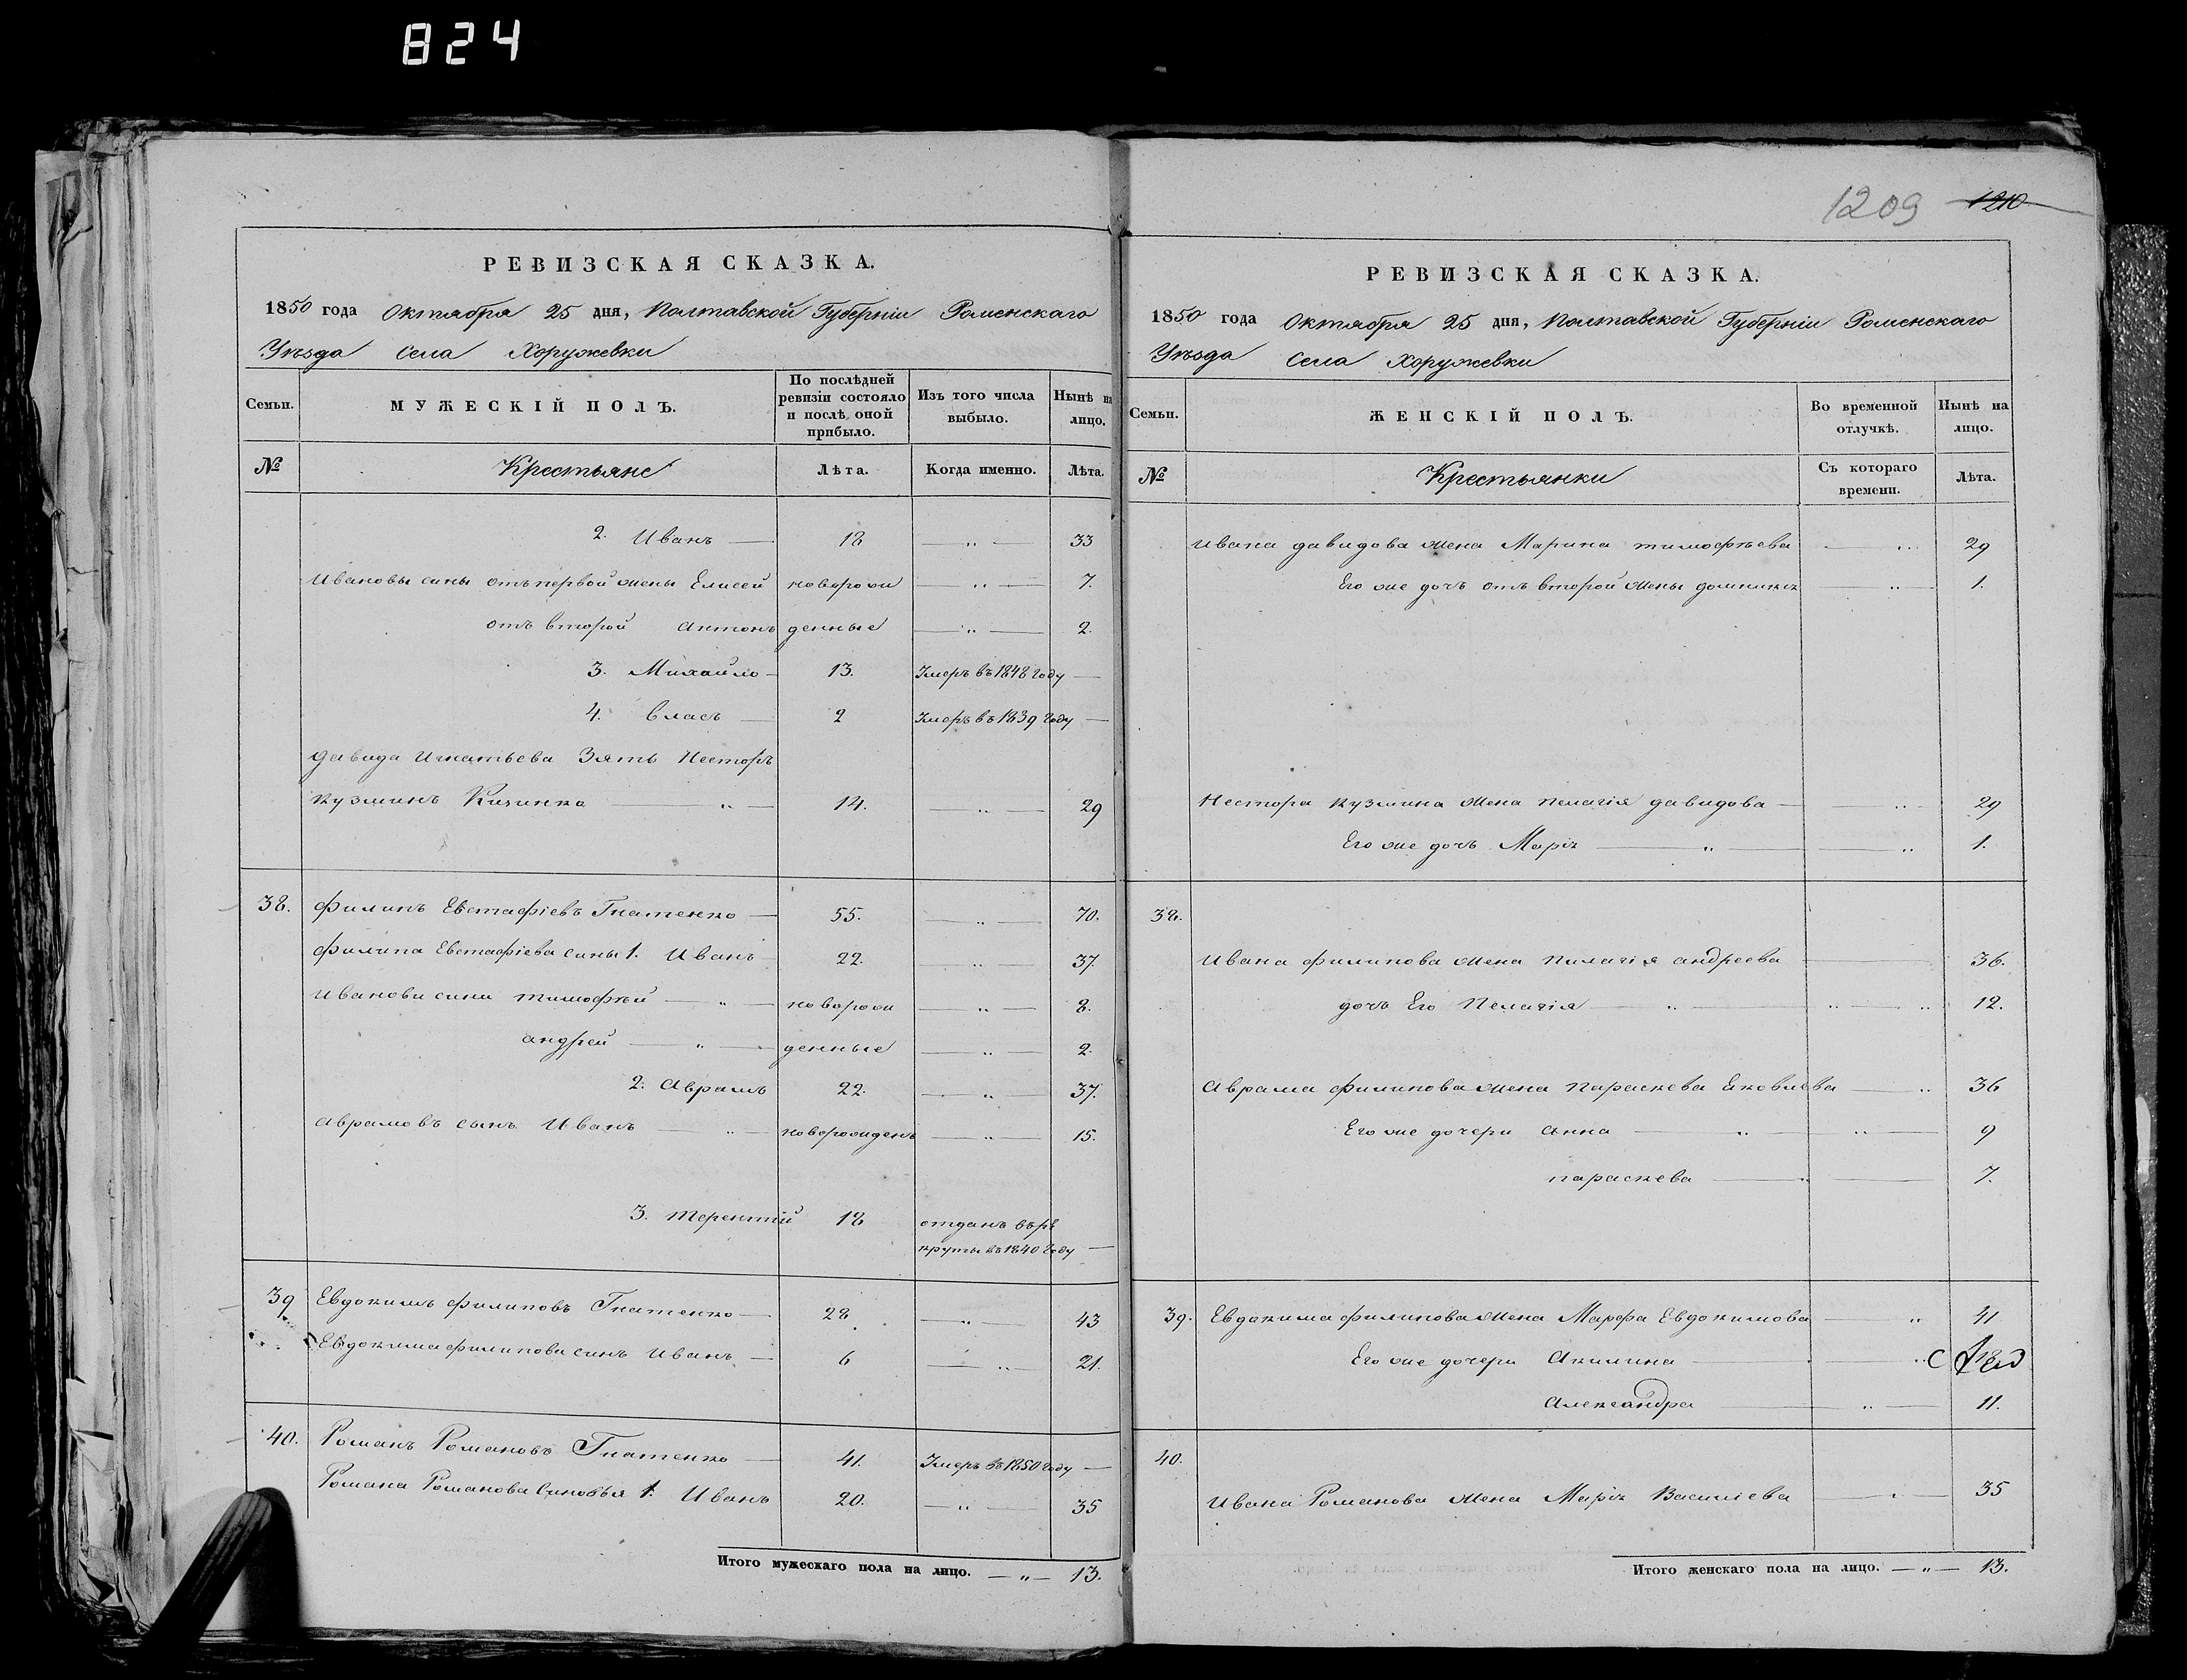 824
1209 1210
РЕВИЗСКАЯ СКАЗКА.
1850 года Октября 25 дня, Полтавской Губерніи Роменскаго
Уѣзда Села Хоружевки
Семьи.
МУЖЕСКІЙ ПОЛЪ.
По послѣдней ревизіи состояло и послѣ оной прибыло.
Изъ того числа выбыло.
Нынѣ на лицо.
№ Крестьяне Лѣта. Когда именно. Лѣта.
2. Иванъ — 18 — „ — 33
Ивановы сины отъ первой жены Елисей новорож — „ — 7.
отъ второй Антонъ денные — „ — 2.
3. Михайло — 13. Умеръ въ 1848 году —
4. Власъ — 2 Умеръ въ 1839 году —
Давида Игнатьева Зять Несторъ
Кузминъ — „ — 14. — „ — 29
38. Филипъ Евстафіевъ Гнатенко — 55. — „ — 70.
Филипа Евстафіева сины 1. Иванъ 22. — „ — 37.
Иванови сини Тимофѣй — „ — новорож — „ — 8.
Андрей — „ — денные — „ — 2.
2. Аврамъ 22. — „ — 37.
Аврамовъ сынъ Иванъ — „ — новорожденъ — „ — 15.
3. Терентій 18 отданъ въ ре
круты въ 1840 году —
39 Евдокимъ Филиповъ Гнатенко — 28. — „ — 43
Евдокима Филипова синъ Иванъ — 6 — „ — 21.
40. Романъ Романовъ Гнатенко — 41. Умеръ въ 1850 году —
Романа Романова Синовья 1. Иванъ 20. — „ — 35
Итого мужескаго пола на лицо. — „ — 13.
РЕВИЗСКАЯ СКАЗКА.
1850 года Октября 25 дня, Полтавской Губерніи Роменскаго
Уѣзда Села Хоружевки
Семьи.
ЖЕНСКІЙ ПОЛЪ.
Во временной отлучкѣ.
Нынѣ на лицо.
№ Крестьянки Съ котораго времени. Лѣта.
Ивана Давидова жена Марина Тимофѣева — „ 29
Его же дочъ отъ второй жены Домникія — „ — 1.
Нестора Кузмина жена Пелагія Давидова — „ — 29
Его же дочъ Марія — „ — „ 1.
38.
Ивана Филипова жена Пилагія Андреева — 36.
дочъ Его Пелагія — „ — „ — „ 12.
Аврама Филипова жена Параскева Яковлева — „ 36
Его же дочери Анна — „ — „ — 9
Параскева — „ — 7.
39. Евдокима Филипова жена Марфа Евдокимова — „ 41
Его же дочери Акилина — „
Александра — „ — 11.
40.
Ивана Романова жена Марія Василіева — „ — 35
Итого женскаго пола на лицо. — „ — 13.